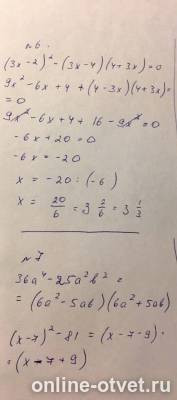 №6.
(3x-2)² - (3x-4)(4+3x)=0
9x² - 6x + 4 + (4-3x)(4+3x)=
= 0
9x² - 6x + 4 + 16 - 9x² = 0
-6x + 20 = 0
-6x = -20
x = -20 : (-6)
x = 20/6 = 3 2/6 = 3 1/3
№7
36a⁴ - 25a²b² =
= (6a² - 5ab)(6a² + 5ab)
(x-7)² - 81 = (x-7-9)·
·(x-7+9)
online-otvet.ru